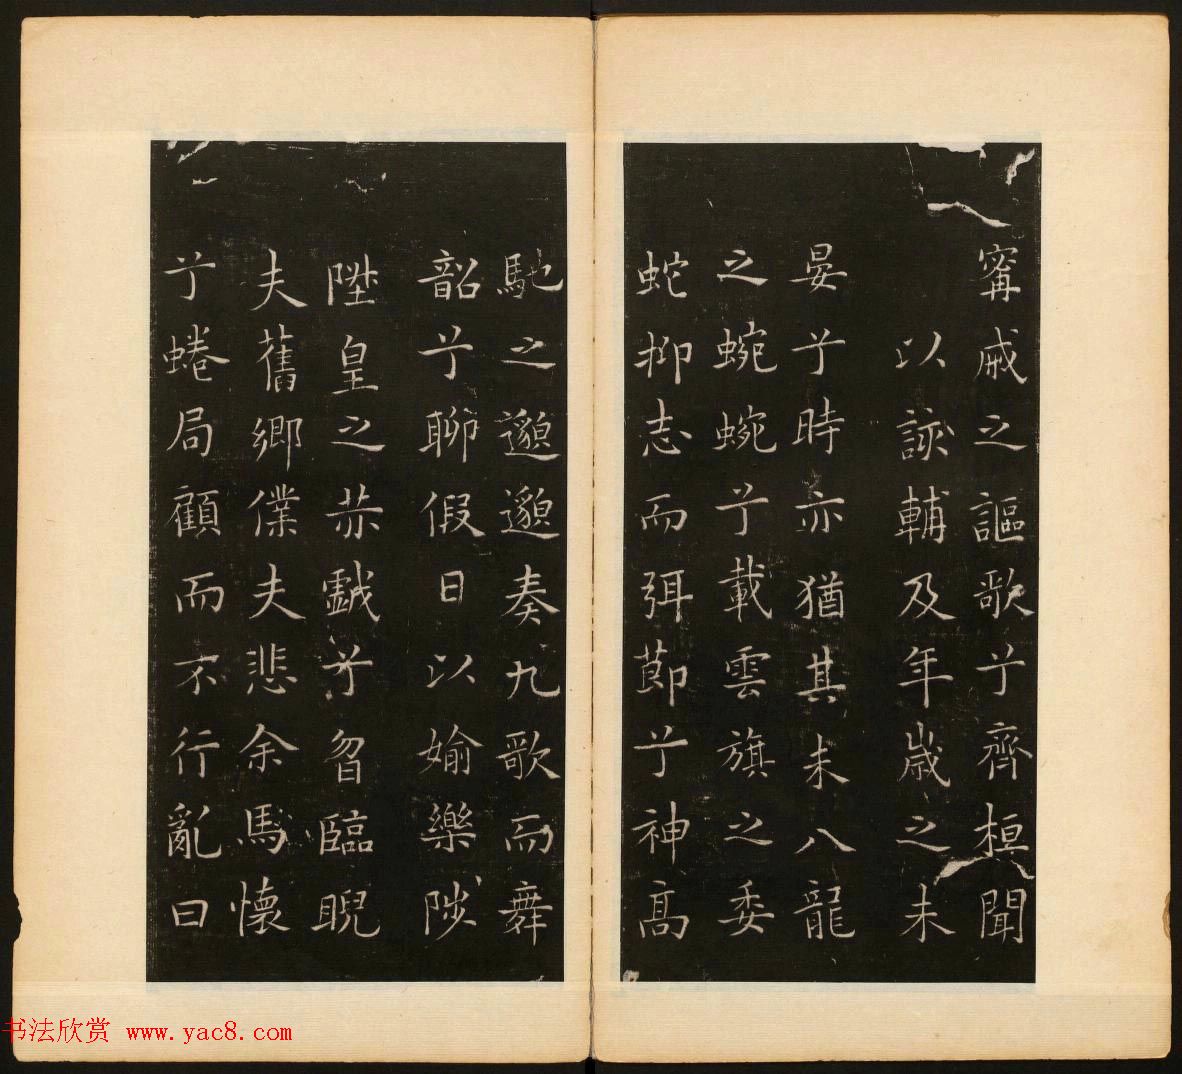 寗戚之謳歌兮齊桓聞
以詼輔及年歲之未
晏兮時亦猶其未八龍
之蜿蜿兮載雲旗之委
蛇抑志而弭節兮神高
馳之邈邈奏九歌而舞
韶兮聊假日以婾樂陟
陞皇之赤戱兮忽臨睨
夫舊鄉僕夫悲余馬懷
兮蜷局顧而不行亂曰
书法欣赏 www.yac8.com